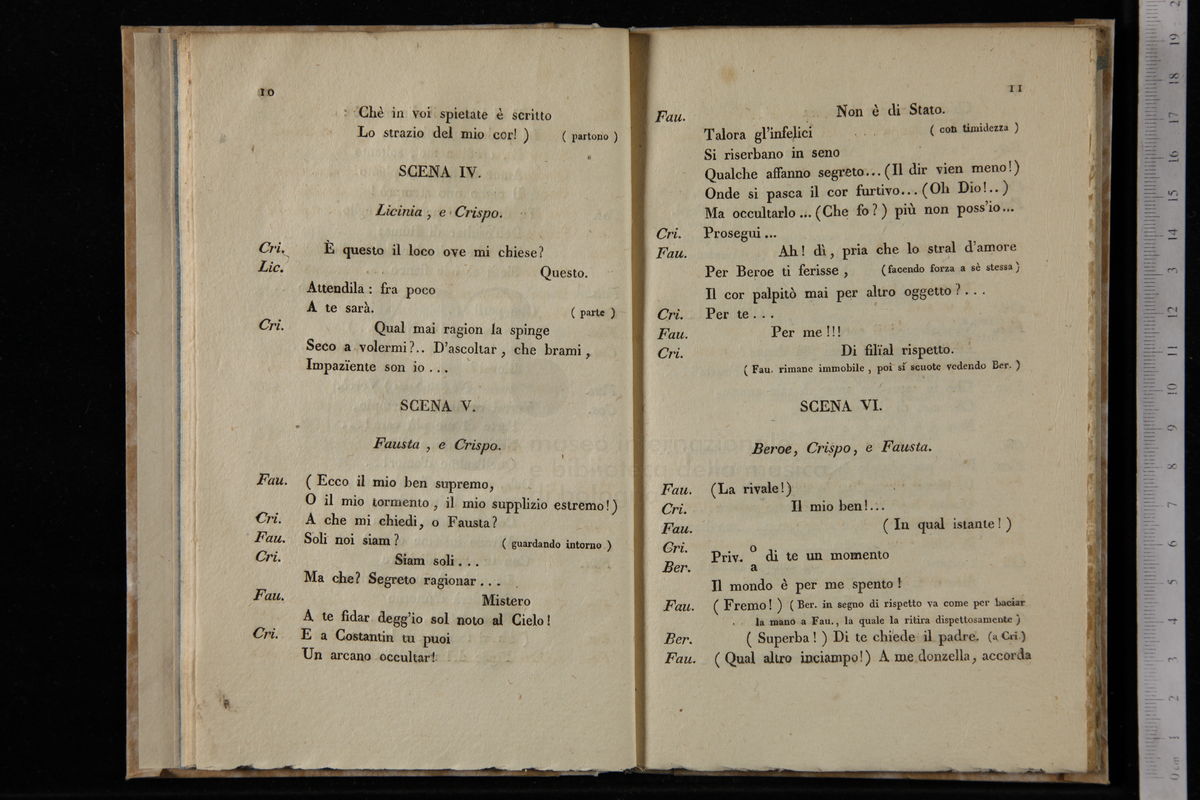 10
Chè in voi spietate è scritto
Lo strazio del mio cor! ) ( partono )
SCENA IV.
Licinia, e Crispo.
Cri. È questo il loco ove mi chiese?
Lic. Questo.
Attendila: fra poco
A te sarà. ( parte )
Cri. Qual mai ragion la spinge
Seco a volermi?.. D'ascoltar, che brami,
Impazïente son io...
SCENA V.
Fausta, e Crispo.
Fau. ( Ecco il mio ben supremo,
O il mio tormento, il mio supplizio estremo!)
Cri. A che mi chiedi, o Fausta?
Fau. Soli noi siam? ( guardando intorno )
Cri. Siam soli...
Ma che? Segreto ragionar...
Fau. Mistero
A te fidar degg'io sol noto al Cielo!
Cri. E a Costantin tu puoi
Un arcano occultar!
11
Fau. Non è di Stato.
Talora gl'infelici ( con timidezza )
Si riserbano in seno
Qualche affanno segreto...(Il dir vien meno!)
Onde si pasca il cor furtivo...(Oh Dio!..)
Ma occultarlo...(Che fo?) più non poss'io...
Cri. Prosegui...
Fau. Ah! dì, pria che lo stral d'amore
Per Beroe ti ferisse, (facendo forza a sè stessa)
Il cor palpitò mai per altro oggetto?...
Cri. Per te...
Fau. Per me!!!
Cri. Di filïal rispetto.
( Fau. rimane immobile, poi si scuote vedendo Ber. )
SCENA VI.
Beroe, Crispo, e Fausta.
Fau. (La rivale!)
Cri. Il mio ben!...
Fau. ( In qual istante! )
Cri. o
Ber. Priv. a di te un momento
Il mondo è per me spento!
Fau. ( Fremo! ) ( Ber. in segno di rispetto va come per baciar
la mano a Fau., la quale la ritira dispettosamente )
Ber. ( Superba! ) Di te chiede il padre. (a Cri.)
Fau. ( Qual altro inciampo!) A me donzella, accorda
museo internazionale
biblioteca della musica
0 cm 1 2 3 4 5 6 7 8 9 10 11 12 13 14 15 16 17 18 19